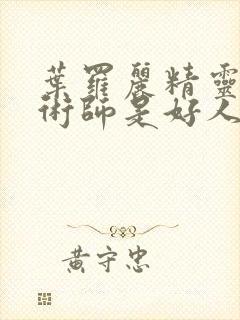 葉羅麗精靈
術師是好人
黃守忠